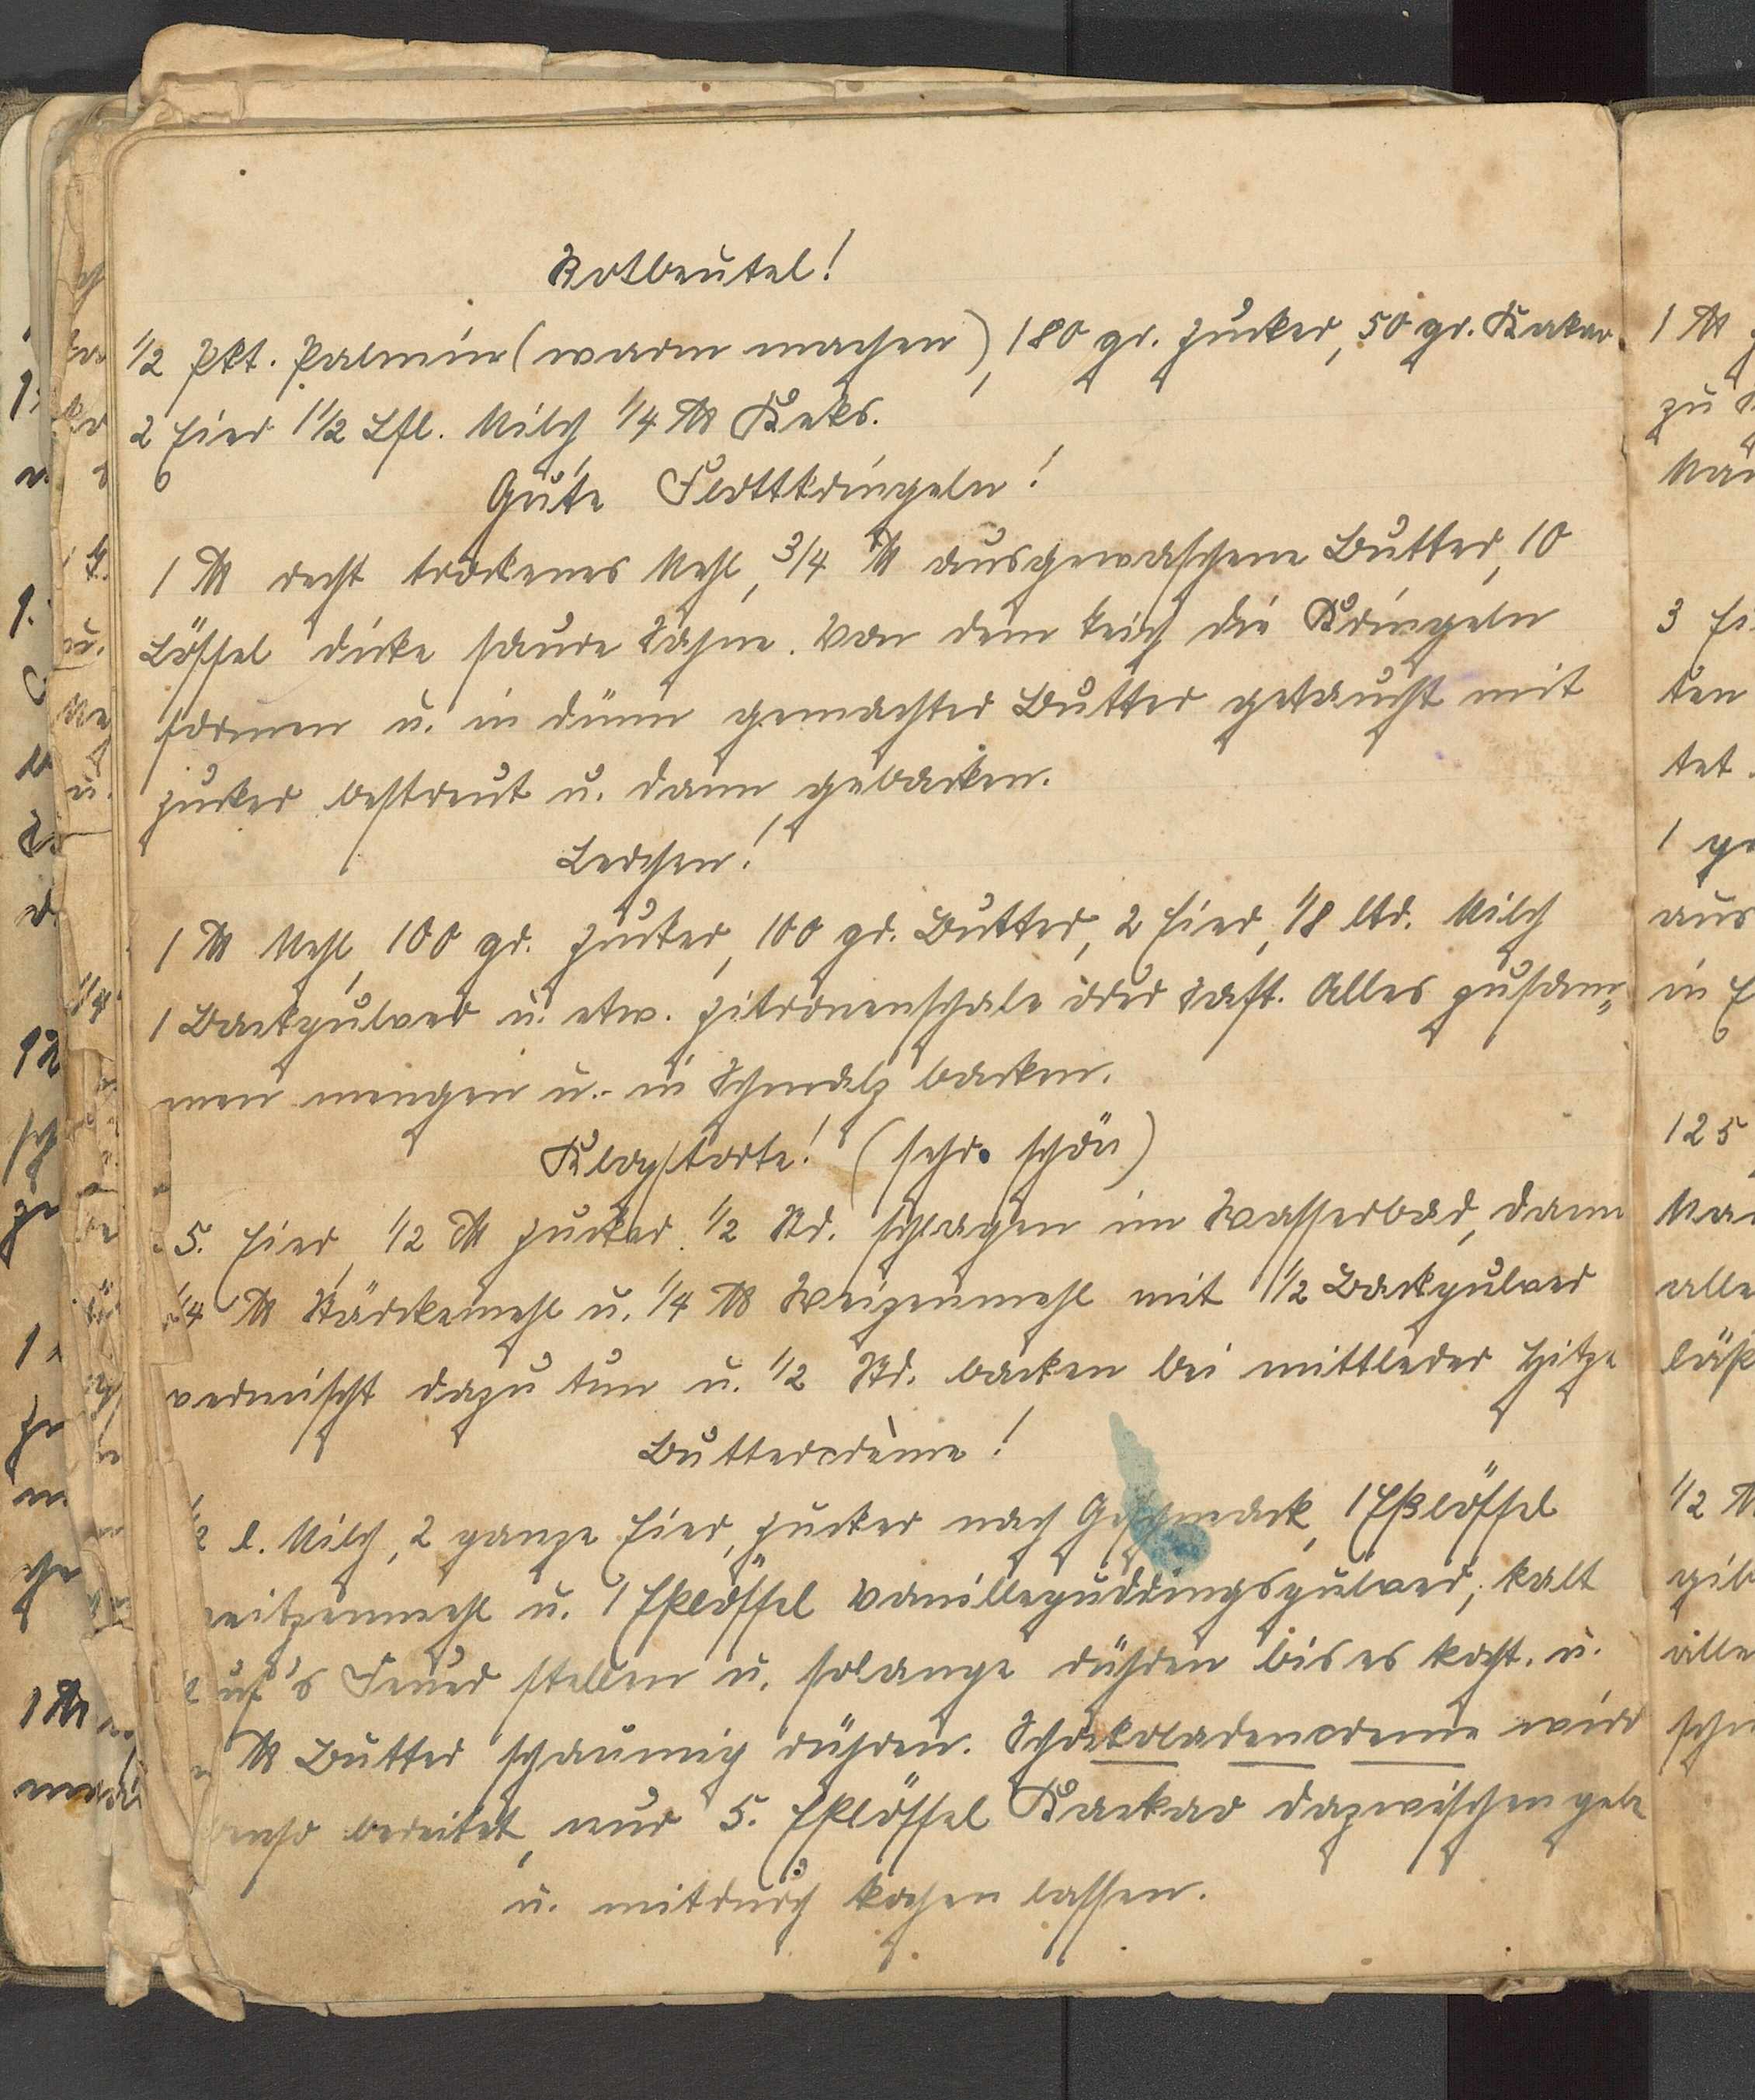 Rotbeutel!
½ Pkt. Palmin (warm machen), 180 gr. Zucker, 50 gr. Kakao
2 Eier 1½ Lfl. Milch ¼ ℔ Keks.
Gute Flottkringeln!
1 ℔ recht trockenes Mehl, 3/4 ℔ ausgewaschene Butter, 10
Löffel dicke saure Sahne. Von dem Teich die Kringeln
formen u. in dünn gemachter Butter getaucht mit
Zucker bestreut u. dann gebacken.
Lerchen!
1 ℔ Mehl, 100 gr. Zucker, 100 gr. Butter, 2 Eier, 1/8 ltr. Milch
1 Backpulver u. etw. Zitronenschale oder Saft. Alles zusam„
men mengen u. in Schmalz backen.
Klopstorte! (sehr schön)
5. Eier, ½ ℔ Zucker. ½ Std. schlagen im Wasserbad, dann
¼ ℔ Stärckemehl u. ¼ ℔ Weizenmehl mit 1½ Backpulver
vermischt dazu tun u. ½ Std. backen bei mittlerer Hitze
Buttercrème!
½ l. Milch, 2 ganze Eier, Zucker nach Geschmack, 1 Eßlöffel
weitzenmehl u. 1 Eßlöffel Vanillepuddingspulver; kalt
auf's Feuer stellen u. solange rühren bis es kocht. u.
℔ Butter schaumig rühren. Schokoladencreme wird
ebenso bereitet, nur 5. Eßlöffel Kackao dazwischen gebe
u. mitdurch kochen lassen.